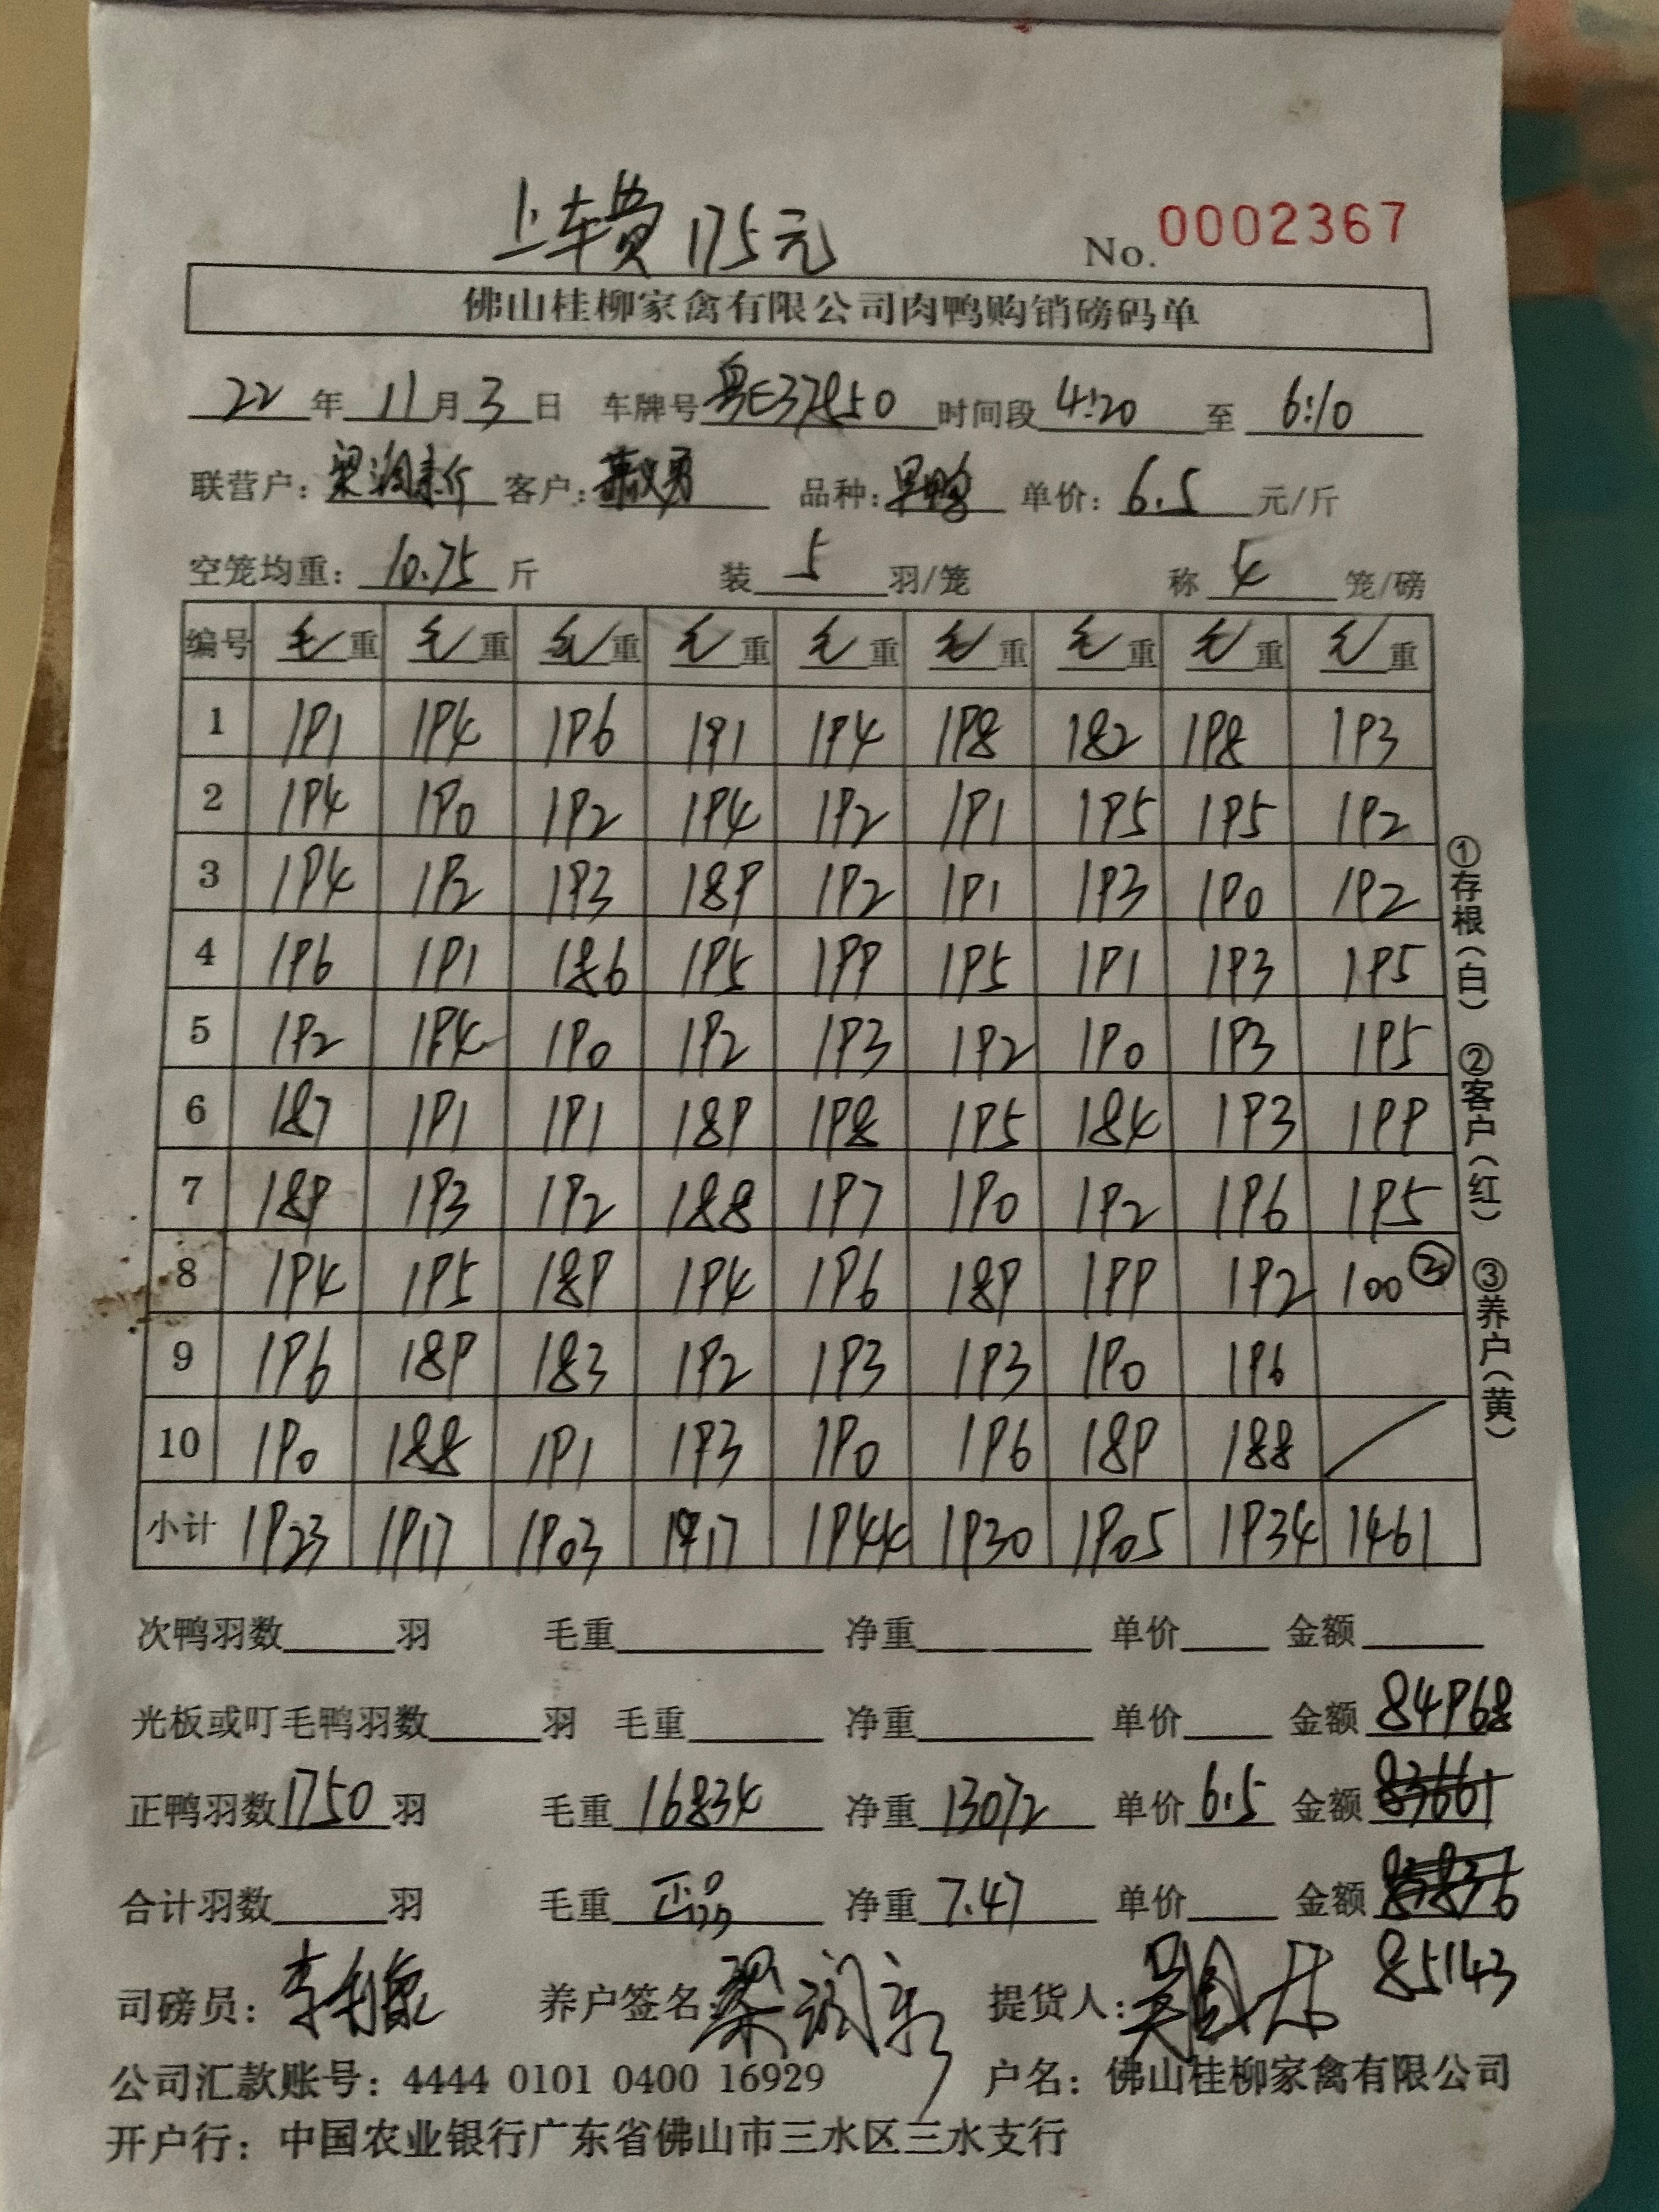 上车费175元
No. 0002367
佛山桂柳家禽有限公司肉鸭购销磅码单
22年11月3日 车牌号粤E37850 时间段4:20至6:10
联营户: 客户: 品种: 单价:6.5元/斤
空笼均重:10.75斤 装5羽/笼 称4笼/磅
编号 毛重 毛重 毛重 毛重 毛重 毛重 毛重 毛重 毛重
1 191 194 196 191 194 198 182 198 193
2 194 190 192 194 192 191 195 195 192
3 194 192 193 189 192 191 193 190 192
4 196 191 186 195 199 195 191 193 195
5 192 194 190 192 193 192 190 193 195
6 187 191 191 189 198 195 184 193 199
7 189 193 192 188 197 190 192 196 195
8 194 195 189 194 196 189 199 192 100②
9 196 189 183 192 193 193 190 196
10 190 188 191 193 190 196 189 188
小计 1923 1917 1903 1917 1944 1930 1905 1934 1461
①存根(白) ②客户(红) ③养户(黄)
次鸭羽数 羽 毛重 净重 单价 金额
光板或叮毛鸭羽数 羽 毛重 净重 单价 金额84968
正鸭羽数1750羽 毛重16834 净重13072 单价6.5 金额83661
合计羽数 羽 毛重正品 净重7.47 单价 金额
85143
司磅员: 养户签名: 提货人:
公司汇款账号:4444 0101 0400 16929 户名:佛山桂柳家禽有限公司
开户行:中国农业银行广东省佛山市三水区三水支行